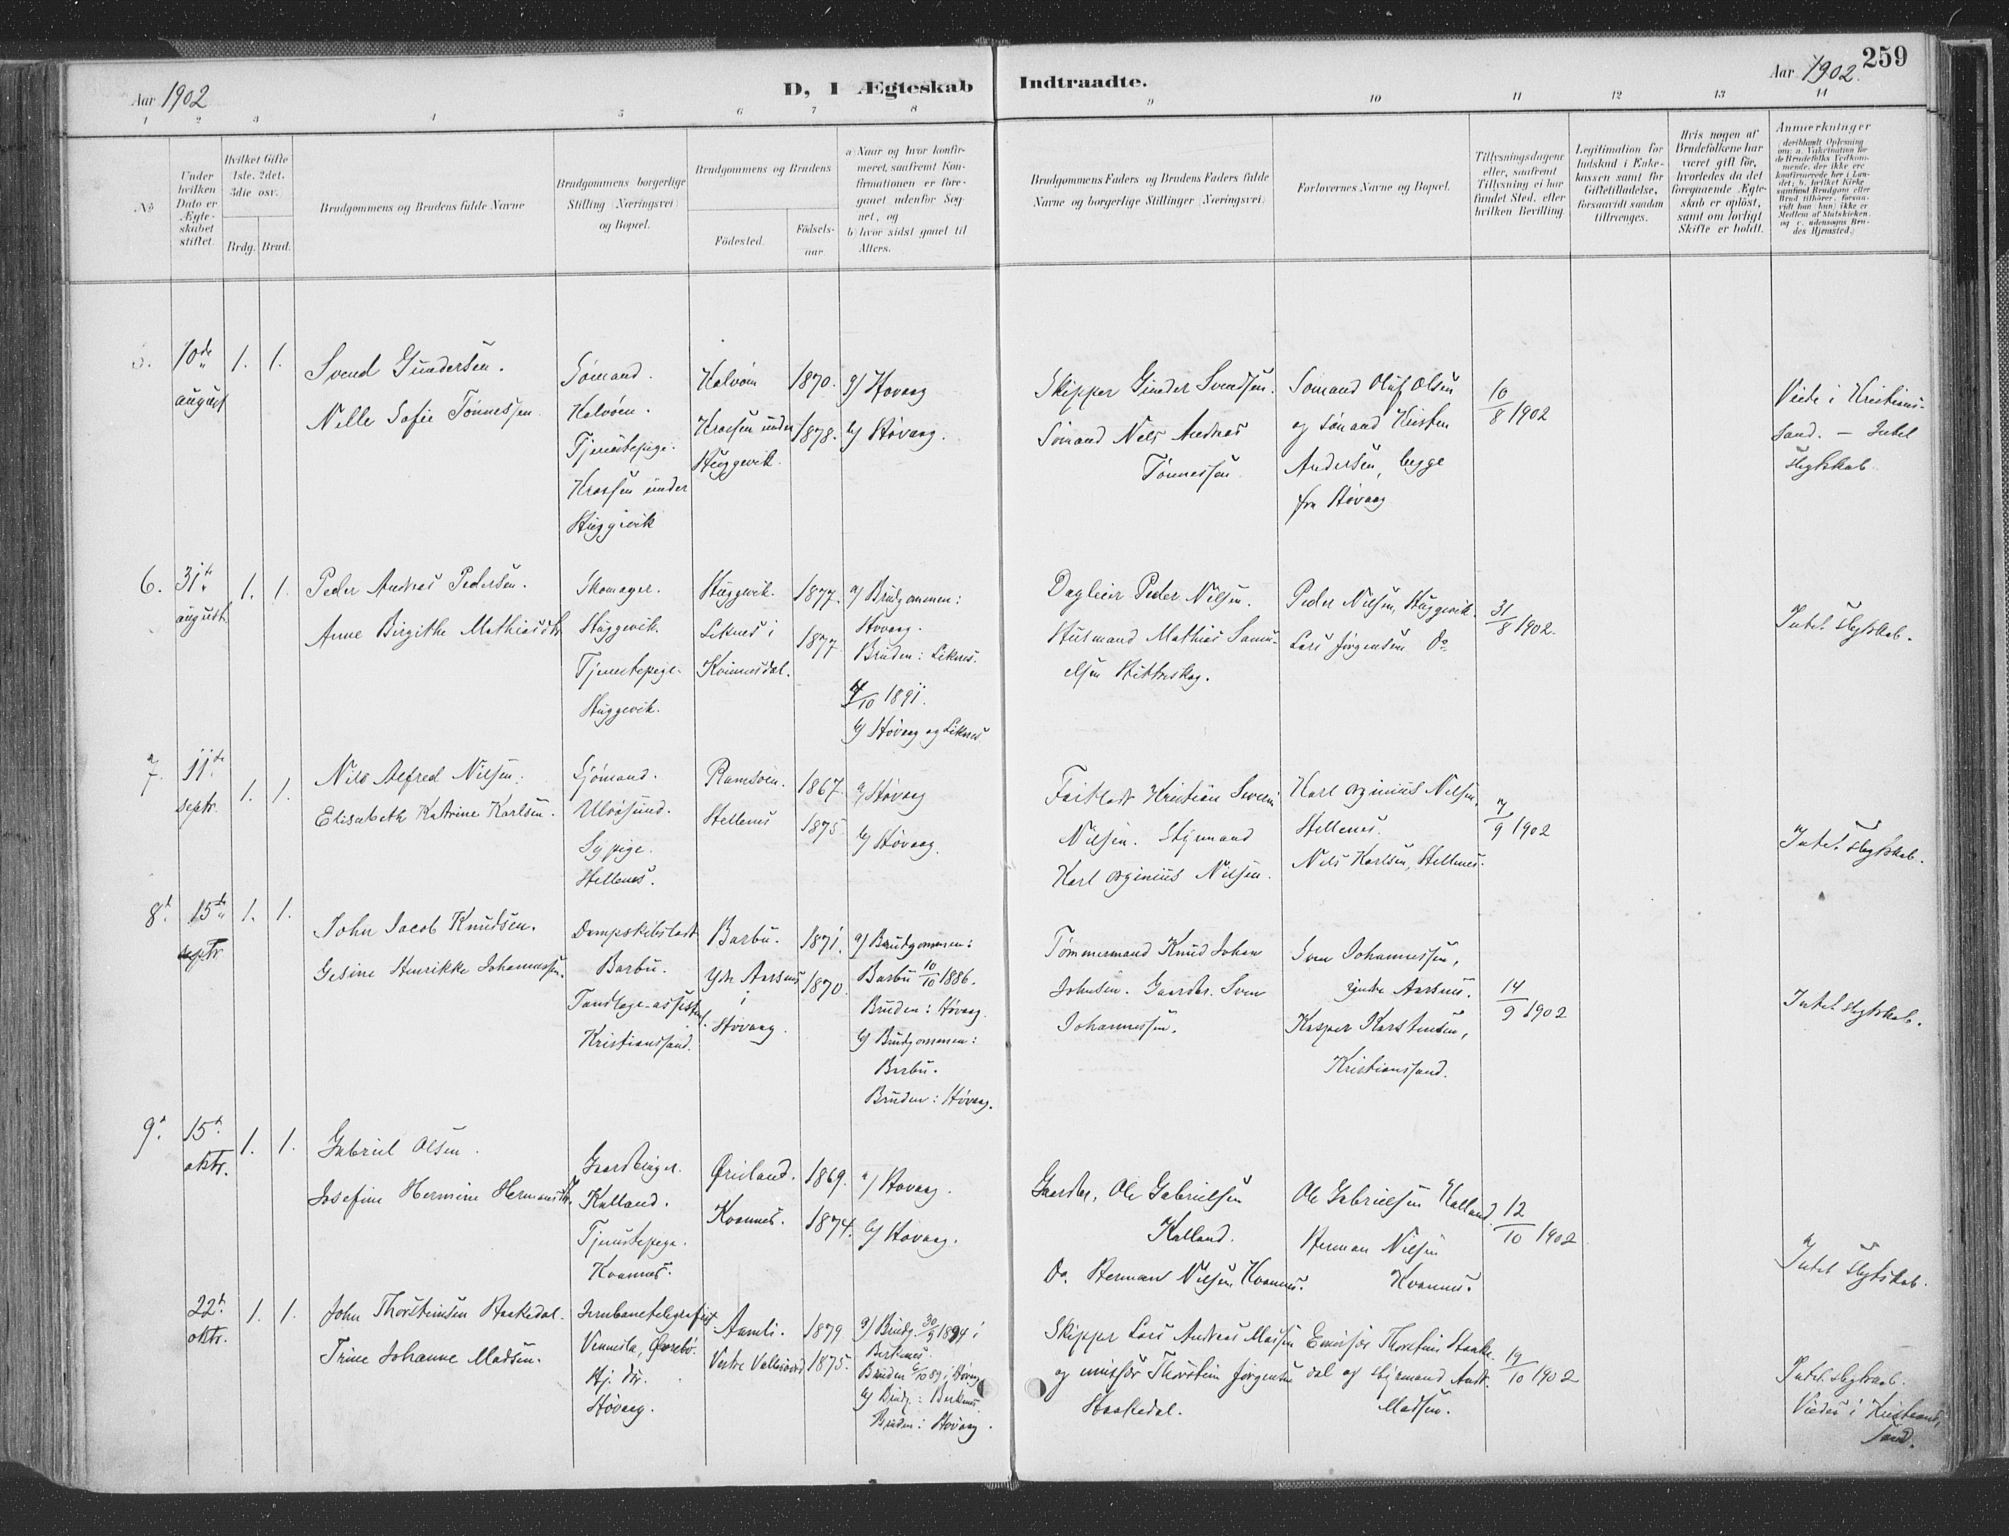 Aar 1902
D, I Ægteskab Indtraadte.
Aar 1902.
259
1 2 3 4 5 6 7 8 9 10 11 12 13 14
No
Under hvilken Dato er Ægteskabet stiftet.
Hvilket Gifte 1ste. 2det. 3die osv.
Brdg. Brud.
Brudgommens og Brudens fulde Navne
Brudgommens borgerlige Stilling (Næringsvei) og Bopæl.
Brudgommens og Brudens
Födested.
Födselsaar
a) Naar og hvor konfirmeret, saafremt Konfirmationen er foregaaet udenfor Sognet, og
b) hvor sidst gaaet til Alters.
Brudgommens Faders og Brudens Faders fulde Navne og borgerlige Stillinger (Næringsvei)
Forlovernes Navne og Bopæl.
Tillysningsdagene eller, saafremt Tillysning ei har fundet Sted, efter hvilken Bevilling.
Legitimation for Indskud i Enkekassen samt for Giftetilladelse, forsaavidt saadan tiltrænges.
Hvis nogen af Brudefolkene har været gift för, hvorledes da det foregaaende Ægteskab er oplöst, samt om lovligt Skifte er holdt.
Anmærkninger
(deriblandt Oplysning om: a. Vakcination for de Brudefolks Vedkommende, der ikke ere konfirmerede her i Landet; b. hvilket Kirkesamfund Brudgom eller Brud tilhører, forsaavidt han (hun) ikke er Medlem af Statskirken, og c. udensogns Brudes Hjemsted.)
5. 10de august 1. 1.
Svend Gundersen.
Nille Sofie Tønnessen
Sømand.
Kalvøen.
Tjenestepige.
Krossen under
Hæggevik
Kalvøen 1870.
Krossen under 1878.
Hæggevik.
a) Høvaag
b) Høvaag.
Skipper Gunder Svendsen.
Sømand Nils Andreas
Tønnessen.
Sømand Oluf Olsen
og Sømand Kristen
Andersen, begge
fra Høvaag
10/8 1902
Viede i Kristians-
sand. — Intet
slegtskab.
6. 31te august. 1. 1.
Peder Andreas Pedersen.
Anne Birgithe Mathiasdtr
Skomager.
Hæggevik.
Tjenestepige.
Hæggevik.
Hæggevik. 1877.
Liknes i 1877
Kvinnesdal.
a) Brudgommen:
Høvaag.
Bruden: Liknes.
4/10 1891.
b) Høvaag og Liknes
Dagleier Peder Nilsen.
Husmand Mathias Samu-
elsen Hittreskog.
Peder Nilsen, Hæggevik.
Lars Jørgensen Do
31/8 1902.
Intet slegtskab.
7. 11te septr. 1. 1.
Nils Alfred Nilsen.
Elisabeth Katrine Karlsen.
Sjømand.
Ulvøsund.
Sypige.
Hellenes.
Ramsøen. 1867.
Hellenes 1875.
a) Høvaag
b) Høvaag.
Kristian Severin
Nilsen. Styrmand
Karl Nilsen.
Karl Nilsen.
Hellenes.
Nils Karlsen, Hellenes.
7/9 1902
Intet slegtskab.
8. 15de septr 1. 1.
John Jacob Knudsen.
Gesine Henrikke Johannessen.
Barbu.
Tandlæge-assistent
Kristianssand.
Barbu. 1871.
Ydr. Aarsnes 1870.
i
Høvaag.
a) Brudgommen:
Barbu 10/10 1886.
Bruden: Høvaag.
b) Brudgommen:
Barbu.
Bruden: Høvaag.
Tømmermand Knud Johan
Johnsen. Gaardbr. Sven
Johannessen.
Sven Johannessen,
yndre Aarsnes.
Kasper Karstensen,
Kristianssand.
14/9 1902
Intet slegtskab.
9. 15de oktr. 1. 1.
Gabriel Olsen.
Josefine Hermine Hermansdtr.
Gaardbruger.
Kalland.
Tjenestepige.
Kvannes.
Øreland. 1869.
Kvannes. 1874.
a) Høvaag.
b) Høvaag.
Gaardbr. Ole Gabrielsen
Kalland.
Do. Herman Nilsen Kvannes.
Ole Gabrielsen Kalland.
Herman Nilsen
Kvannes.
12/10 1902
Intet slegtskab.
22de oktr. 1. 1.
John Thorsteinsen Haakedal.
Trine Johanne Madsen.
Jernbanetelegrafist
Vennesla, Øvrebø.
Hj. dtr.
Høvaag.
Aamli. 1879
Vestre Vallesverd 1875.
a) Brudg. 30/9 1894 i
Birkenes.
Bruden i Høvaag
b) Brudg: Birkenes.
Bruden: Høvaag.
Skipper Lars Andreas Madsen
og emissær Thorstein Jørgensen
Haakedal.
Emissær Thorstein Haake-
dal og styrmand Andr.
Madsen.
19/10 1902
Intet slegtskab.
Viedes i Kristians-
sand.